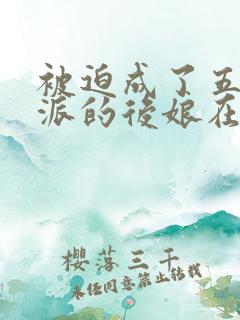 被迫成了五
派的後娘在
櫻落三千
未经同意禁止转载